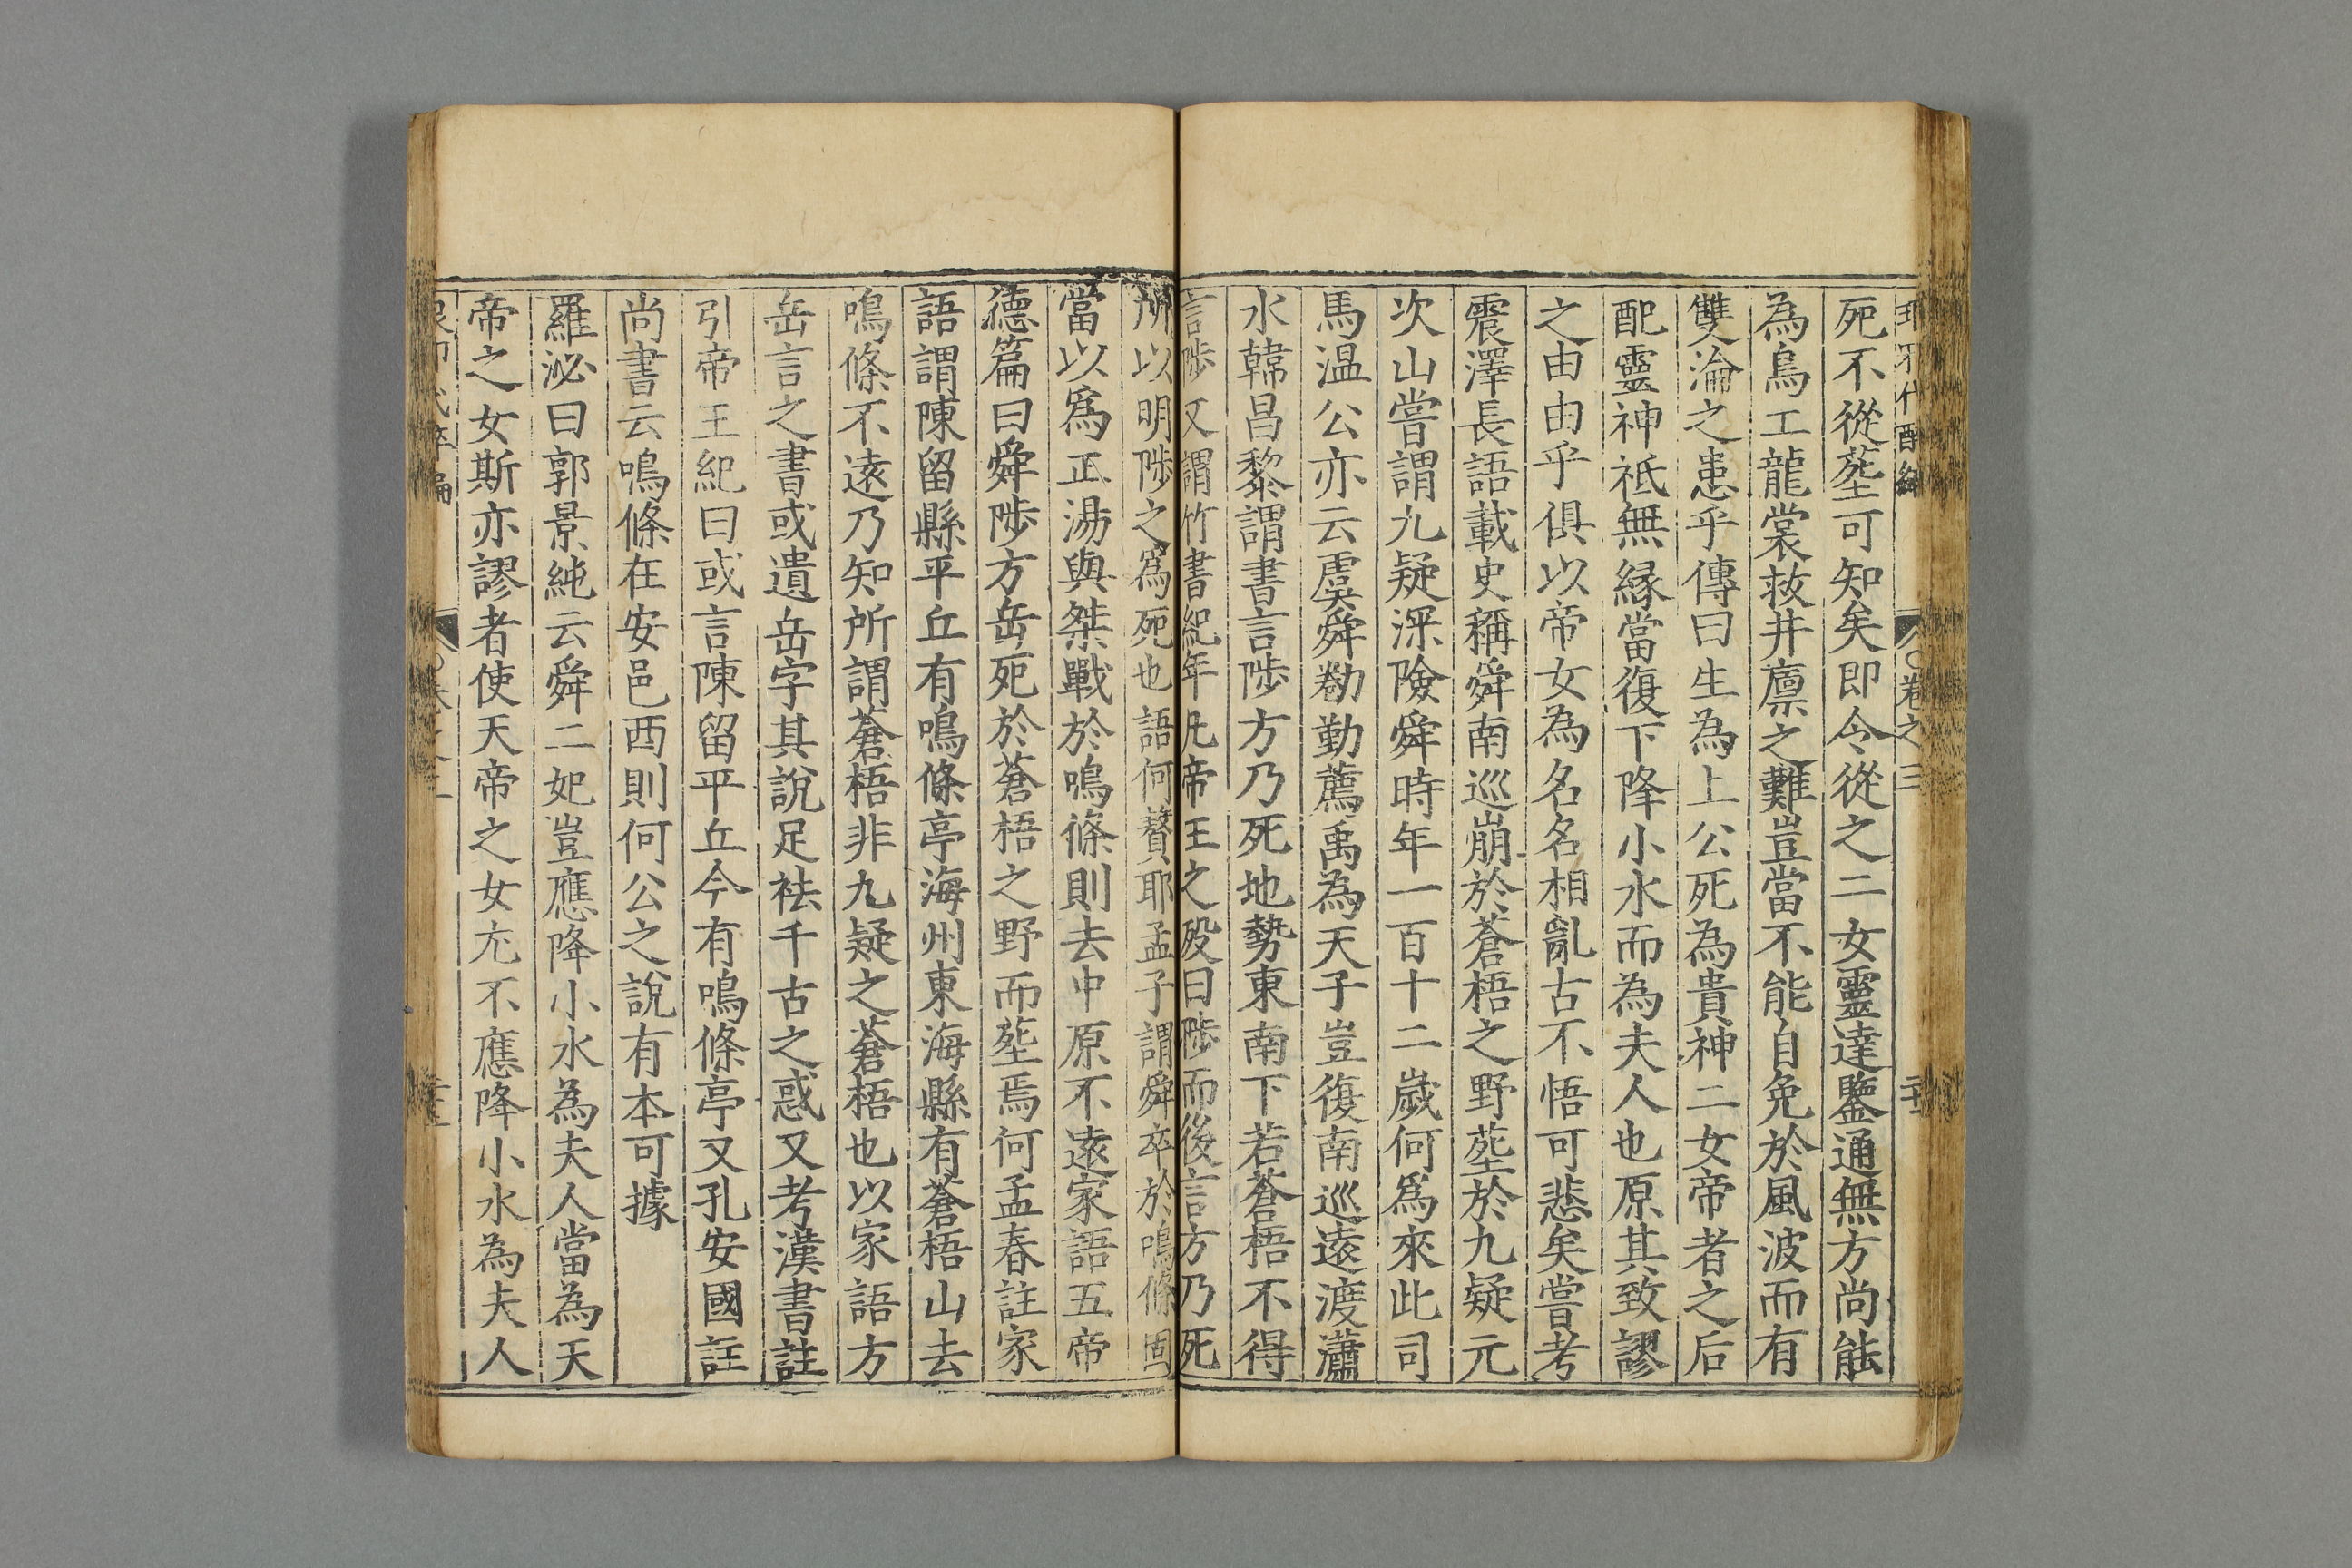 卷之三
死不從塟可知矣即令從之二女靈達鑒通無方尚能
為鳥工龍裳救井廪之難豈當不能自免於風波而有
雙淪之患乎傳曰生為上公死為貴神二女帝者之后
配靈神祇無緣當復下降小水而為夫人也原其致謬
之由由乎俱以帝女為名名相亂古不悟可悲矣嘗考
震澤長語載史稱舜南巡崩於蒼梧之野塟於九疑元
次山嘗謂九疑深險舜時年一百十二歲何爲來此司
馬温公亦云虞舜勌勤薦禹為天子豈復南巡遠渡瀟
水韓昌黎謂書言陟方乃死地勢東南下若蒼梧不得
言陟又謂竹書紀年凡帝王之殁曰陟而後言方乃死
所以明陟之爲死也語何贅耶孟子謂舜卒於鳴條固
當以爲正湯與桀戰於鳴條則去中原不遠家語五帝
德篇曰舜陟方岳死於蒼梧之野而塟焉何孟春註家
語謂陳留縣平丘有鳴條亭海州東海縣有蒼梧山去
鳴條不遠乃知所謂蒼梧非九疑之蒼梧也以家語方
岳言之書或遺岳字其說足袪千古之惑又考漢書註
引帝王紀曰或言陳留平丘今有鳴條亭又孔安國註
尚書云鳴條在安邑西則何公之說有本可據
羅泌曰郭景純云舜二妃豈應降小水為夫人當為天
帝之女斯亦謬者使天帝之女尤不應降小水為夫人